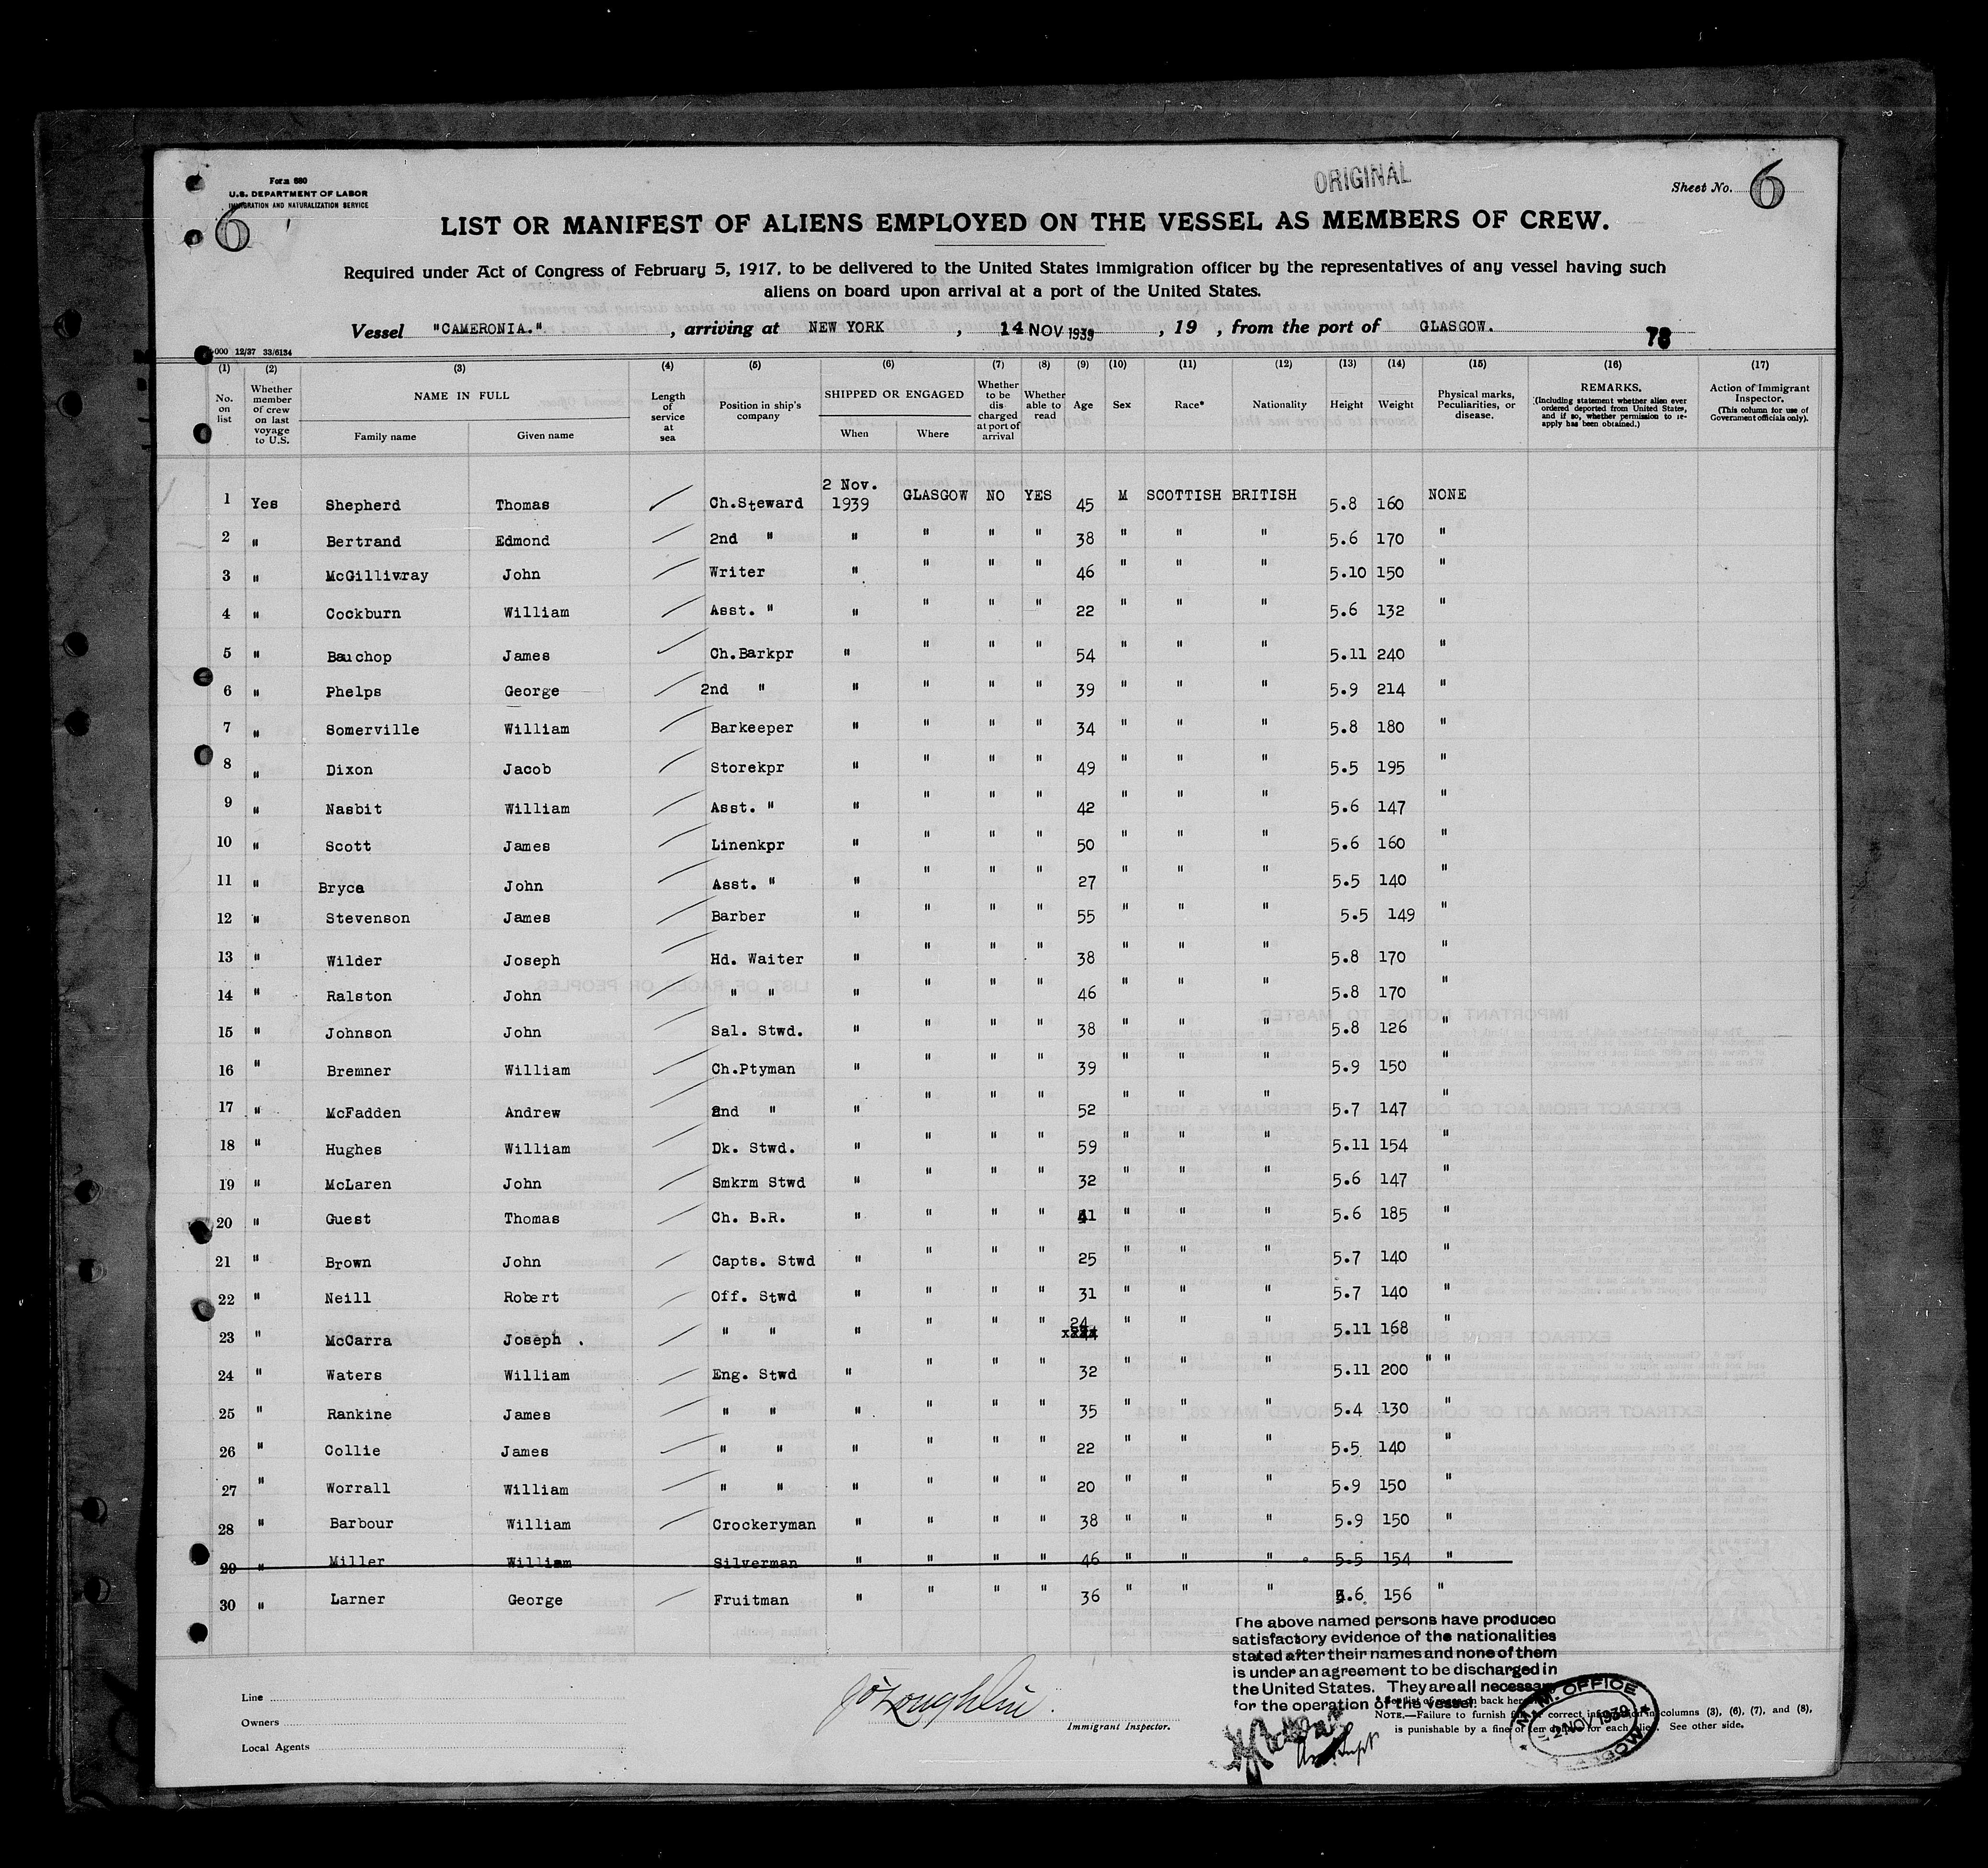 Form 680
U.S. DEPARTMENT OF LABOR
IMMIGRATION AND NATURALIZATION SERVICE
6
ORIGINAL
Sheet No. 6
LIST OR MANIFEST OF ALIENS EMPLOYED ON THE VESSEL AS MEMBERS OF CREW.
Required under Act of Congress of February 5, 1917, to be delivered to the United States immigration officer by the representatives of any vessel having such
aliens on board upon arrival at a port of the United States.
Vessel "CAMERONIA." , arriving at NEW YORK , 14 NOV 1939 , 19 , from the port of GLASGOW. 78
000 12/37 33/6134
(1) (2) (3) (4) (5) (6) (7) (8) (9) (10) (11) (12) (13) (14) (15) (16) (17)
No. on list Whether member of crew on last voyage to U.S. NAME IN FULL Family name Given name Length of service at sea Position in ship's company SHIPPED OR ENGAGED When Where Whether to be discharged at port of arrival Whether able to read Age Sex Race* Nationality Height Weight Physical marks, Peculiarities, or disease. REMARKS. (Including statement whether alien ever ordered deported from United States, and if so, whether permission to re-apply has been obtained.) Action of Immigrant Inspector. (This column for use of Government officials only).
1 Yes Shepherd Thomas Ch.Steward 2 Nov. 1939 GLASGOW NO YES 45 M SCOTTISH BRITISH 5.8 160 NONE
2 " Bertrand Edmond 2nd " " " " " 38 " " " 5.6 170 "
3 " McGillivray John Writer " " " " 46 " " " 5.10 150 "
4 " Cockburn William Asst. " " " " " 22 " " " 5.6 132 "
5 " Bauchop James Ch.Barkpr " " " " 54 " " " 5.11 240 "
6 " Phelps George 2nd " " " " " 39 " " " 5.9 214 "
7 " Somerville William Barkeeper " " " " 34 " " " 5.8 180 "
8 " Dixon Jacob Storekpr " " " " 49 " " " 5.5 195 "
9 " Nasbit William Asst. " " " " " 42 " " " 5.6 147 "
10 " Scott James Linenkpr " " " " 50 " " " 5.6 160 "
11 " Bryca John Asst. " " " " " 27 " " " 5.5 140 "
12 " Stevenson James Barber " " " " 55 " " " 5.5 149 "
13 " Wilder Joseph Hd. Waiter " " " " 38 " " " 5.8 170 "
14 " Ralston John " " " " " " 46 " " " 5.8 170 "
15 " Johnson John Sal. Stwd. " " " " 38 " " " 5.8 126 "
16 " Bremner William Ch.Ptyman " " " " 39 " " " 5.9 150 "
17 " McFadden Andrew 2nd " " " " " 52 " " " 5.7 147 "
18 " Hughes William Dk. Stwd. " " " " 59 " " " 5.11 154 "
19 " McLaren John Smkrm Stwd " " " " 32 " " " 5.6 147 "
20 " Guest Thomas Ch. B.R. " " " " 41 " " " 5.6 185 "
21 " Brown John Capts. Stwd " " " " 25 " " " 5.7 140 "
22 " Neill Robert Off. Stwd " " " " 31 " " " 5.7 140 "
23 " McCarra Joseph . " " " " " " 24 " " " 5.11 168 "
24 " Waters William Eng. Stwd " " " " 32 " " " 5.11 200 " "
25 " Rankine James " " " " " " 35 " " " 5.4 130 "
26 " Collie James " " " " " " 22 " " " 5.5 140 "
27 " Worrall William " " " " " " 20 " " " 5.9 150 "
28 " Barbour William Crockeryman " " " " 38 " " " 5.9 150 "
29 " Miller William Silverman " " " " 46 " " " 5.5 154 "
30 " Larner George Fruitman " " " " 36 " " " 5.6 156 "
The above named persons have produced
satisfactory evidence of the nationalities
stated after their names and none of them
is under an agreement to be discharged in
the United States. They are all necessary
for the operation of the vessel.
Line
Owners
Local Agents
Immigrant Inspector.
* See list of races on back hereof.
NOTE.—Failure to furnish full or correct information in columns (3), (6), (7), and (8),
is punishable by a fine of ten dollars for each alien. See other side.
M.M. OFFICE
2 NOV 1939
GLASGOW